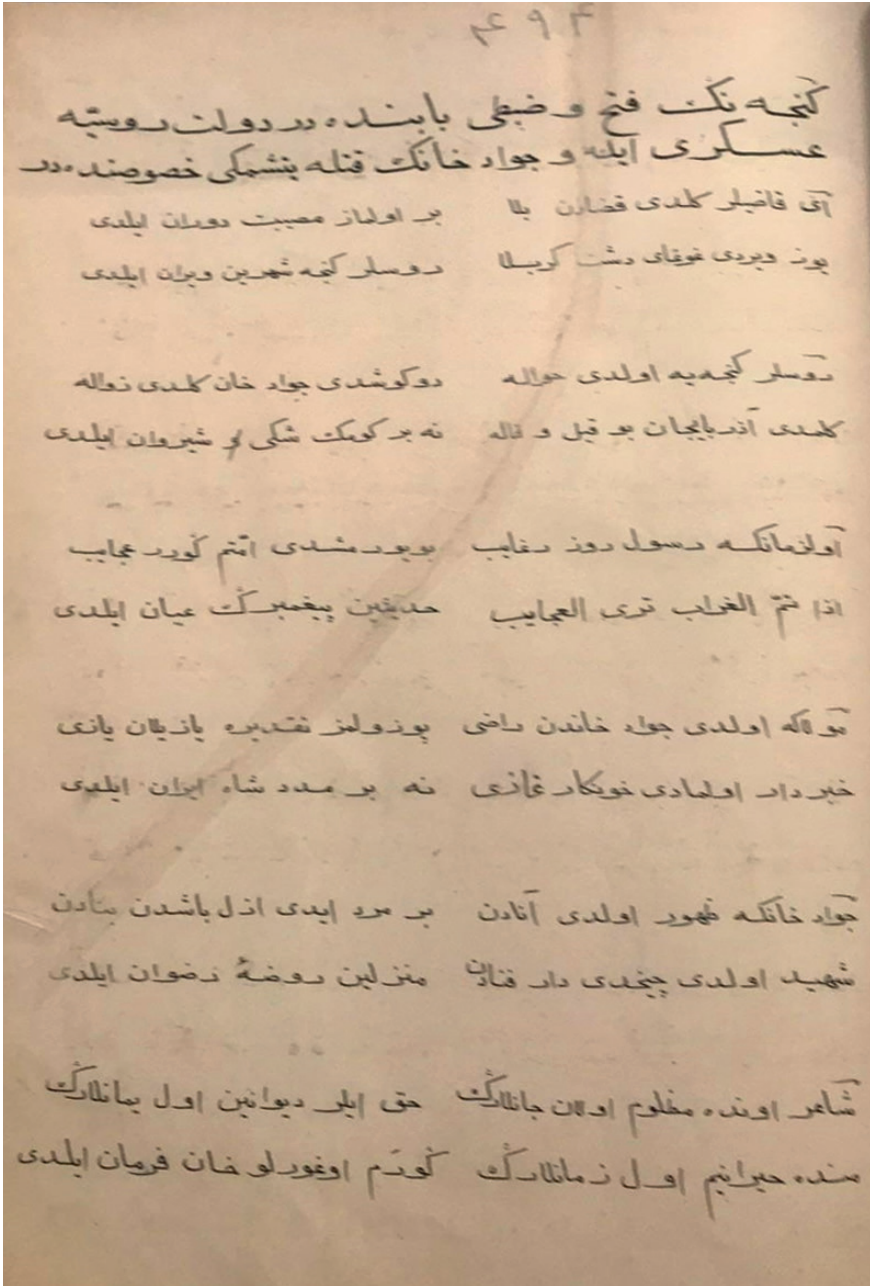 ۴۹۴
گنجه نڭ فتح و ضبطی بابنده در دولت روسیّه
عسکری ایله و جواد خانڭ قتله یتشمکی خصوصنده در
آی قاضیلر کلدی قضادن بلا بر اولماز مصیبت دوران ایلدی
یوز ویردی غوغای دشت کربلا روسلر کنجه شهرین ویران ایلدی
روسلر کنجه یه اولدی حواله دوکوشدی جواد خان کلدی زواله
کلمدی آذربایجان بو قیل و قاله نه بر کومک شکی و شیروان ایلدی
اولزمانکه رسول روز رغایب بویورمشدی امّتم کورر عجایب
اذا تمّ الغراب تری العجایب حدیثین پیغمبرڭ عیان ایلدی
مولاکه اولدی جواد خاندن راضی پوزولمز تقدیره یازیلان یازی
خبردار اولمادی خوبکار غازی نه بر مدد شاه ایران ایلدی
جواد خانکه ظهور اولدی آنادن بر مرد ایدی ازل باشدن بنادن
شهید اولدی چیخدی دار فنادن منزلین روضۀ رضوان ایلدی
شاعر اونده مظلوم اولان جانلارڭ حق ایلر دیوانین اول یمانلارڭ
منده حیرانیم اول زمانلارڭ کوردم اوغورلو خان فرمان ایلدی